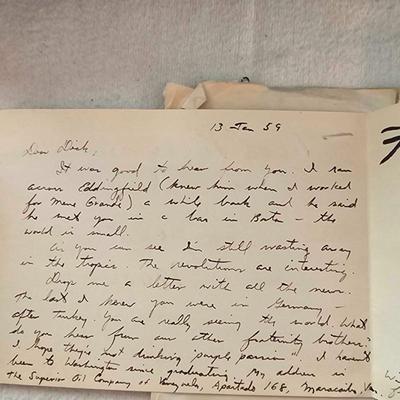 13 Jan 59
Dear Dick,
It was good to hear from you. I ran
across Eddingfield (knew him when I worked
for Mene Grande) a while back and he said
he met you in a bar in Bata - the
world is small.
As you can see I'm still wasting away
in the tropics. The revolutions are interesting.
Drop me a letter with all the news.
The last I knew you were in Germany
after Turkey. You are really seeing the world. What
do you hear from our other fraternity brothers?
I hope they're not drinking "purple passion". I haven't
been to Washington since graduating. My address is
The Superior Oil Company of Venezuela, Apartado 168, Maracaibo, Ven.